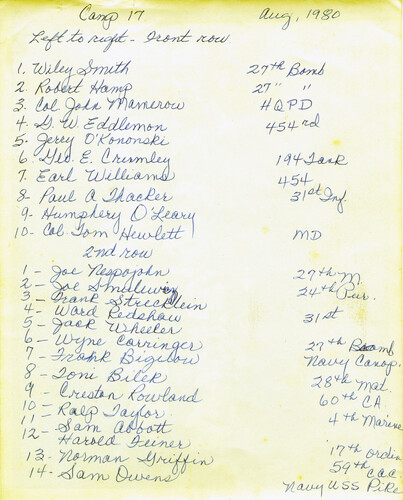 Camp 17 Aug, 1980
Left to right - Front row
1. Wiley Smith 27th Bomb
2. Robert Hamp 27" "
3. Col John Mamerow HQPD
4 - G. W. Eddlemon 454rd
5 - Jerry O'Kononski
6 - Geo. E. Crumley 194 Tank
7. Earl Williams 454
8 - Paul A Thacker 31st Inf
9 - Humphery O'Leary
10 - Col. Tom Hewlett MD
2nd row
1 - Joe Nespojohn 27th M
2 - Joe 24th Pur.
3 - Frank Strecklein
4 - Ward Redshaw 31st
5 - Jack Wheeler
6 - Wyne Carringer 27th Bomb
7 - Frank Bigelow Navy Canop.
8 - Toni Bilek 28th Mat
9 - Criston Rowland 60th CA
10 - Ralp Taylor 4th Marine
11 - Sam Abbott
12 - Harold Feiner 17th Orden
13 - Norman Griffin 59th CAC
14 - Sam Owens Navy USS Pike